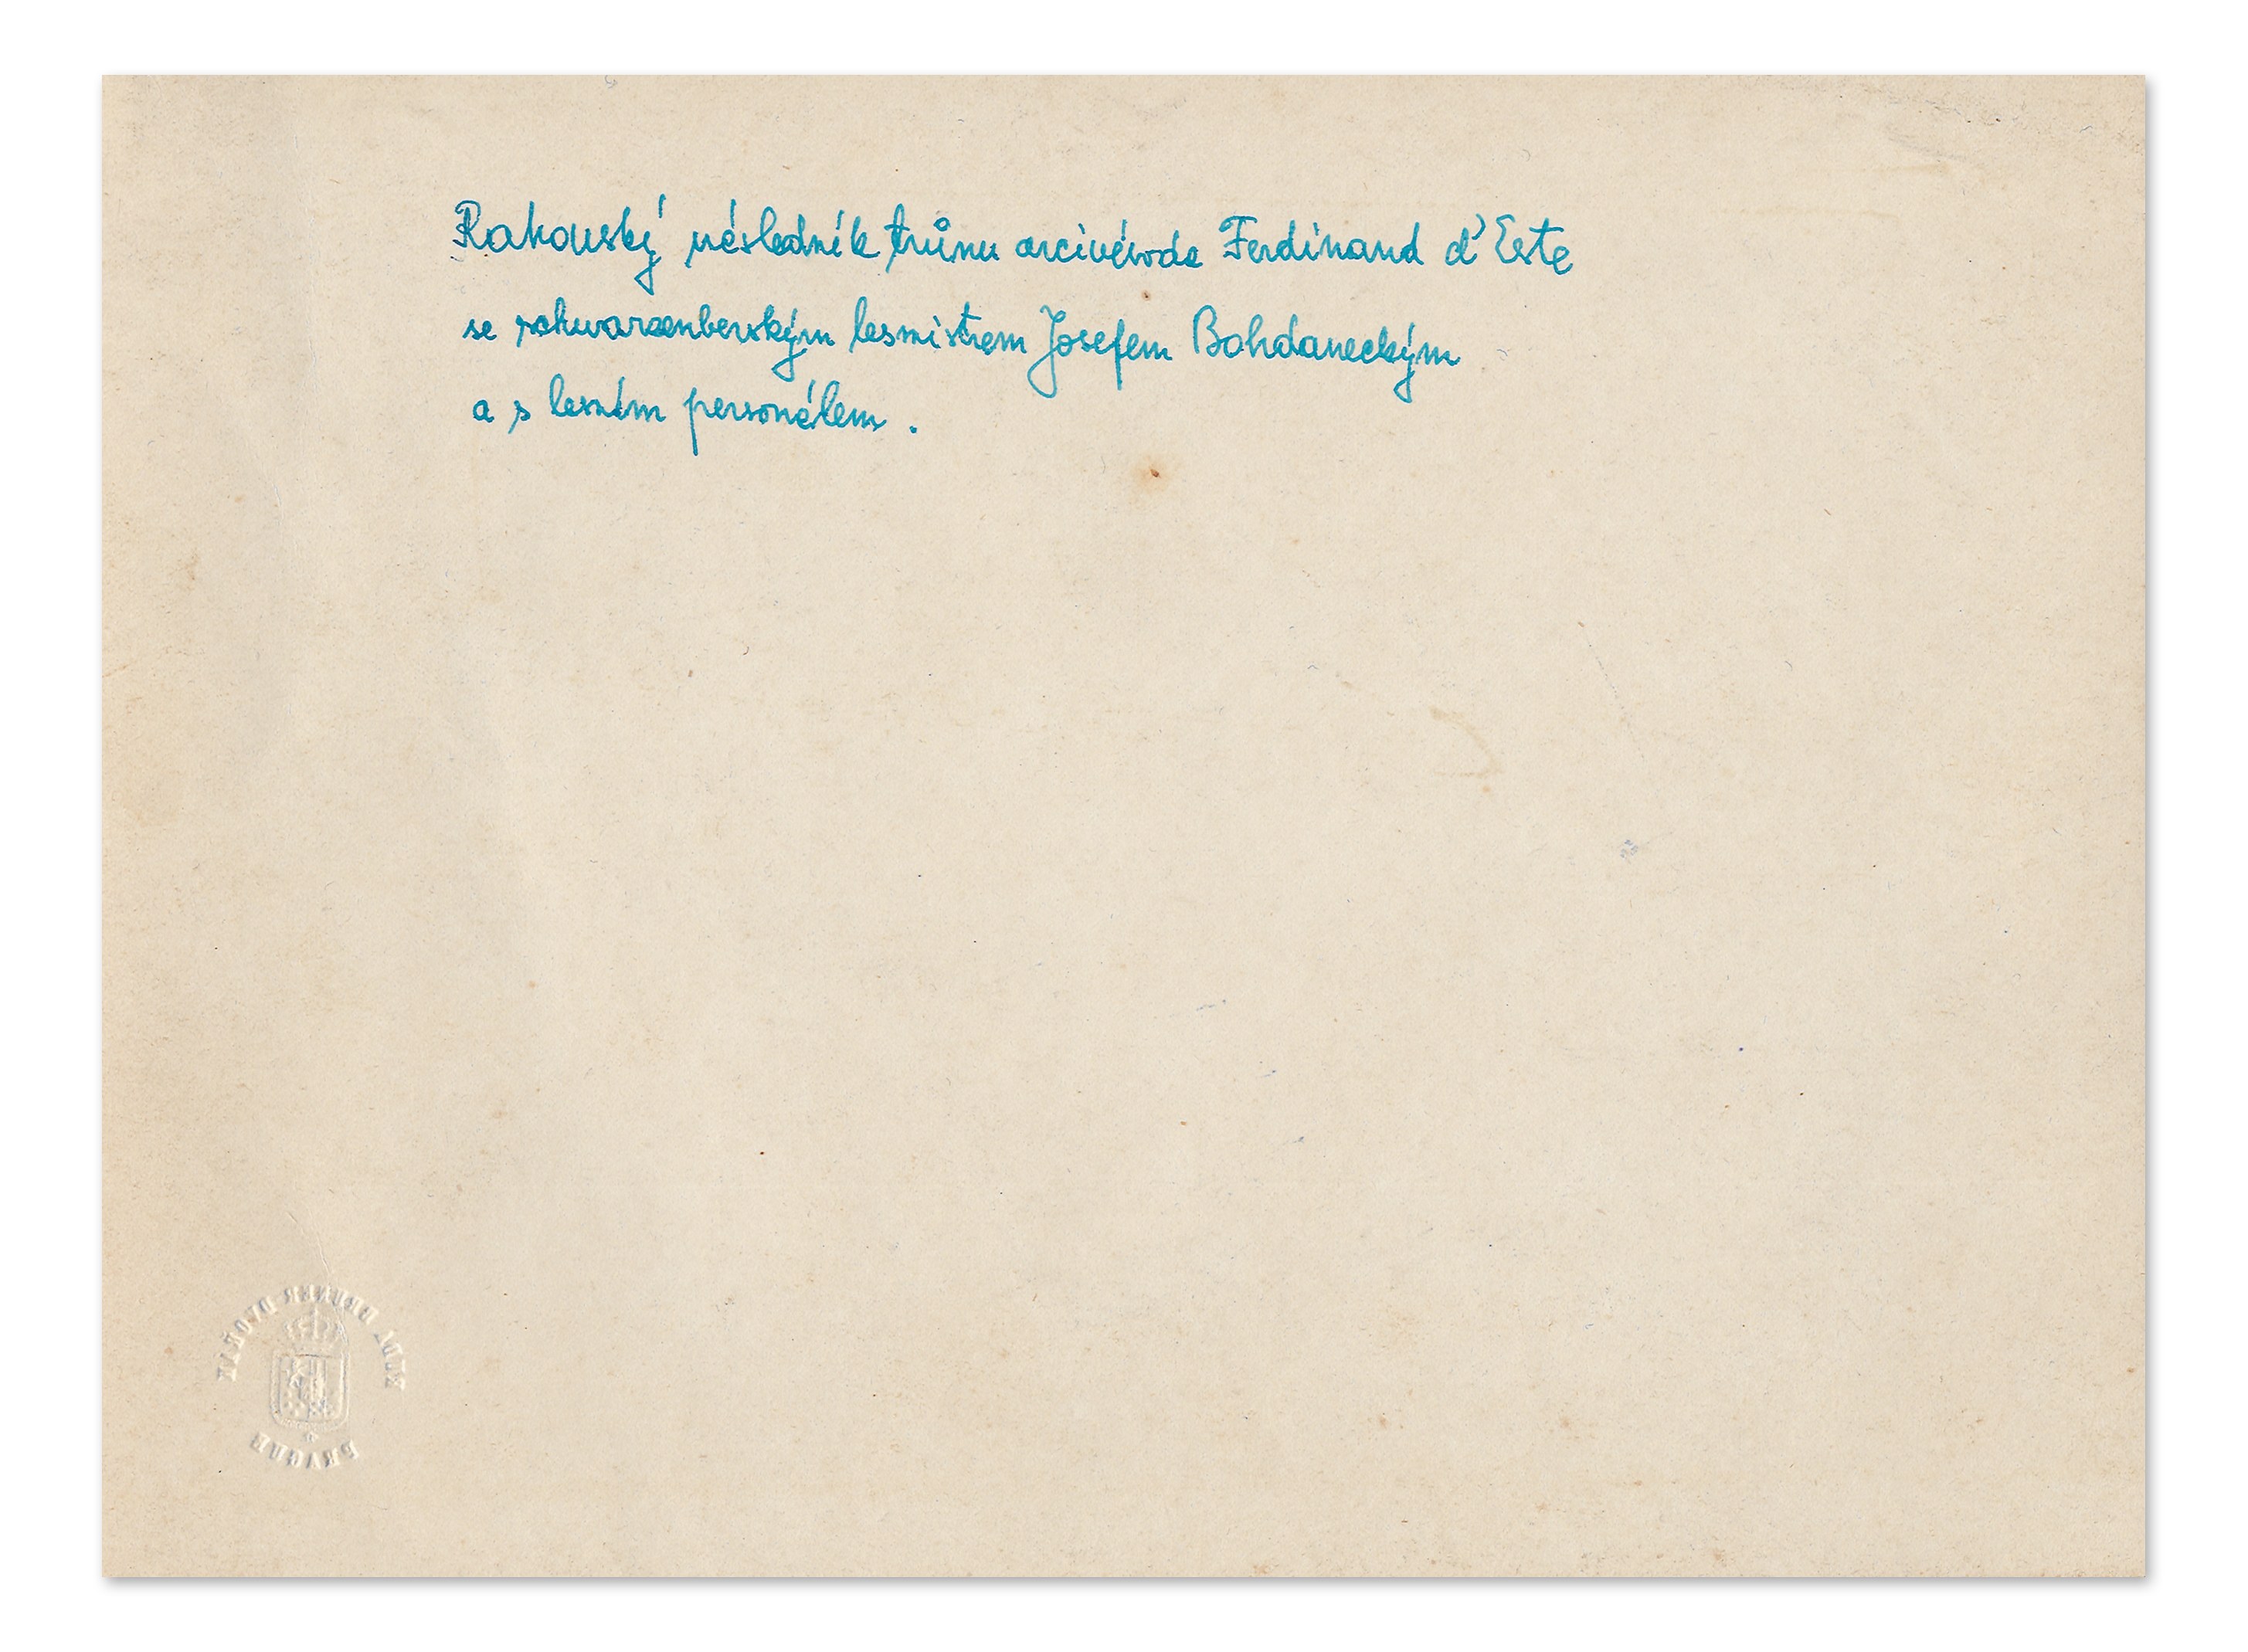 Rakouský následník trůnu arcivévoda Ferdinand d'Este
se schwarzenberským lesmistrem Josefem Bohdaneckým
a s lesním personálem.
PRAGUE